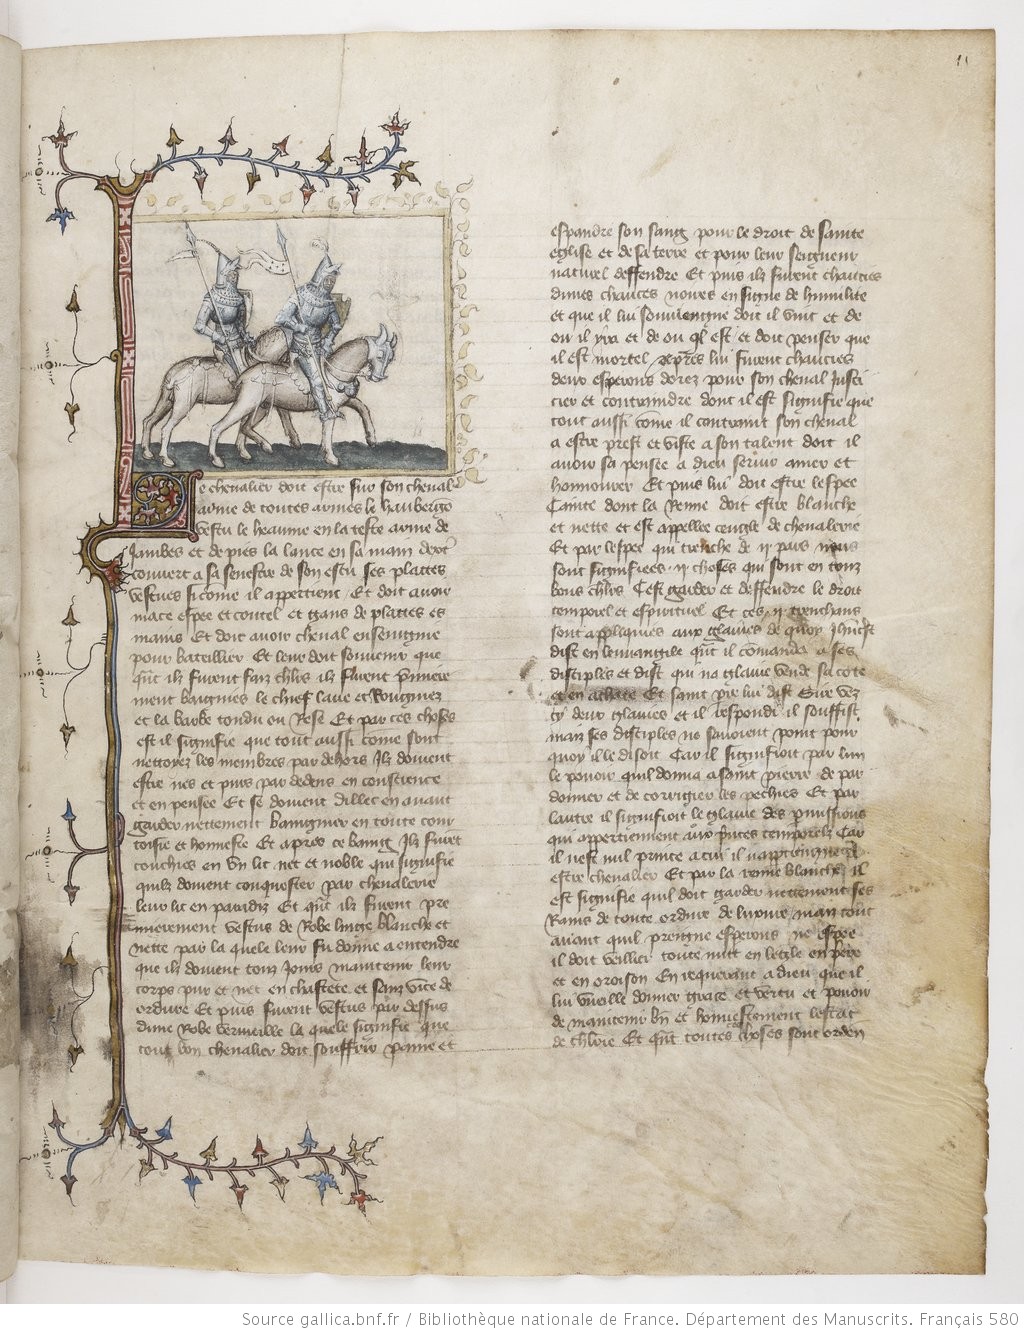 11
Le chevalier doit estre sur son cheval
arme de toutes armes le haubergon
vestu le heaume en la teste arme de
Jambes et de pies la lance en sa main dext'
couvert a sa senestre de son escu ses plattes
vestues sicome il appertient Et doit avoir
mace espee et coutel et gans de plattes es
mains Et doit avoir cheval enseignie
pour bataillier Et leur doit souvenir que
qnt ilz furent faiz chlrs ilz furent primiere
ment baignies le chief lave et Rougniez
et la barbe tondu ou Rese Et par ces choses
est il signifie que tout aussi come sont
nettoyez les membres par dehors Ilz doivent
estre nes et purs par dedens en conscience
et en pensee Et se doivent dillec en avant
garder nettement baingnier en toute cour
toisie et honneste Et apres ce baing Ilz furent
couchies en un lit net et noble qui signifie
quilz doivent conquester par chevalerie
leur lit en paradiz Et qnt ilz furent pre
mierement vestus de Robe linge blanche et
nette par la quele leur fu donne a entendre
que ilz doivent touz Jours maintenir leur
corps pur et net en chastete et sanz vice de
ordure Et puis furent vestus par dessus
dune Robe vermeille la quele signifie que
tout bon chevalier doit souffrir painne et
espandre son sang pour le droit de sainte
eglise et de sa terre et pour leur seigneur
naturel deffendre Et puis ilz furent chaucies
dunes chauces noires en signe de humilite
et que il lui souviengne dont il vint et de
ou il yra et de ou ql est et doit penser que
il est mortel Apres lui furent chaucies
deux esperons dorez pour son cheval Justi
cier et contraindre dont il est signifie que
tout aussi come il contraint son cheval
a estre prest et viste a son talent doit il
avoir sa pensee a dieu servir amer et
honnourer Et puis lui doit estre lespee
Cainte dont la Renne doit estre blanche
et nette et est appellee cengle de chevalerie
Et par lespee qui trenche de ij pars nous
sont signifiees ij choses qui sont en touz
bons chlrs Cest garder et deffendre le droit
temporel et espirituel Et ces ij trenchans
sont appliquies aux glaives de quoy Jhucst
dist en leuvangile qnt il comanda a ses
disciples et dist qui na glaive vende sa cote
et en achate Et saint pre lui dist Sire vez
cy deux glaives et il respondi il souffist
mais ses disciples ne savoient point pour
quoy il le disoit Car il signifioit par lun
le povoir quil donna a saint pierre de par
donner et de corrigier les pechies Et par
lautre il signifioit le glaive des punissions
qui appertiennent aux princes temporelz Car
il nest nul prince a cui il nappertiengne de
estre chevalier Et par la renne blanche il
est signifie quil doit garder nettement ses
Rains de toute ordure de luxure mais tout
avant quil prengne esperons ne espee
il doit veillier toute nuit en leglise en piez
et en oroison En requerant a dieu que il
lui vueille donner grace et vertu et povoir
de maintenir bn et honnestement lestat
de chlrie Et qnt toutes choses sont orden
Source gallica.bnf.fr / Bibliothèque nationale de France. Département des Manuscrits. Français 580